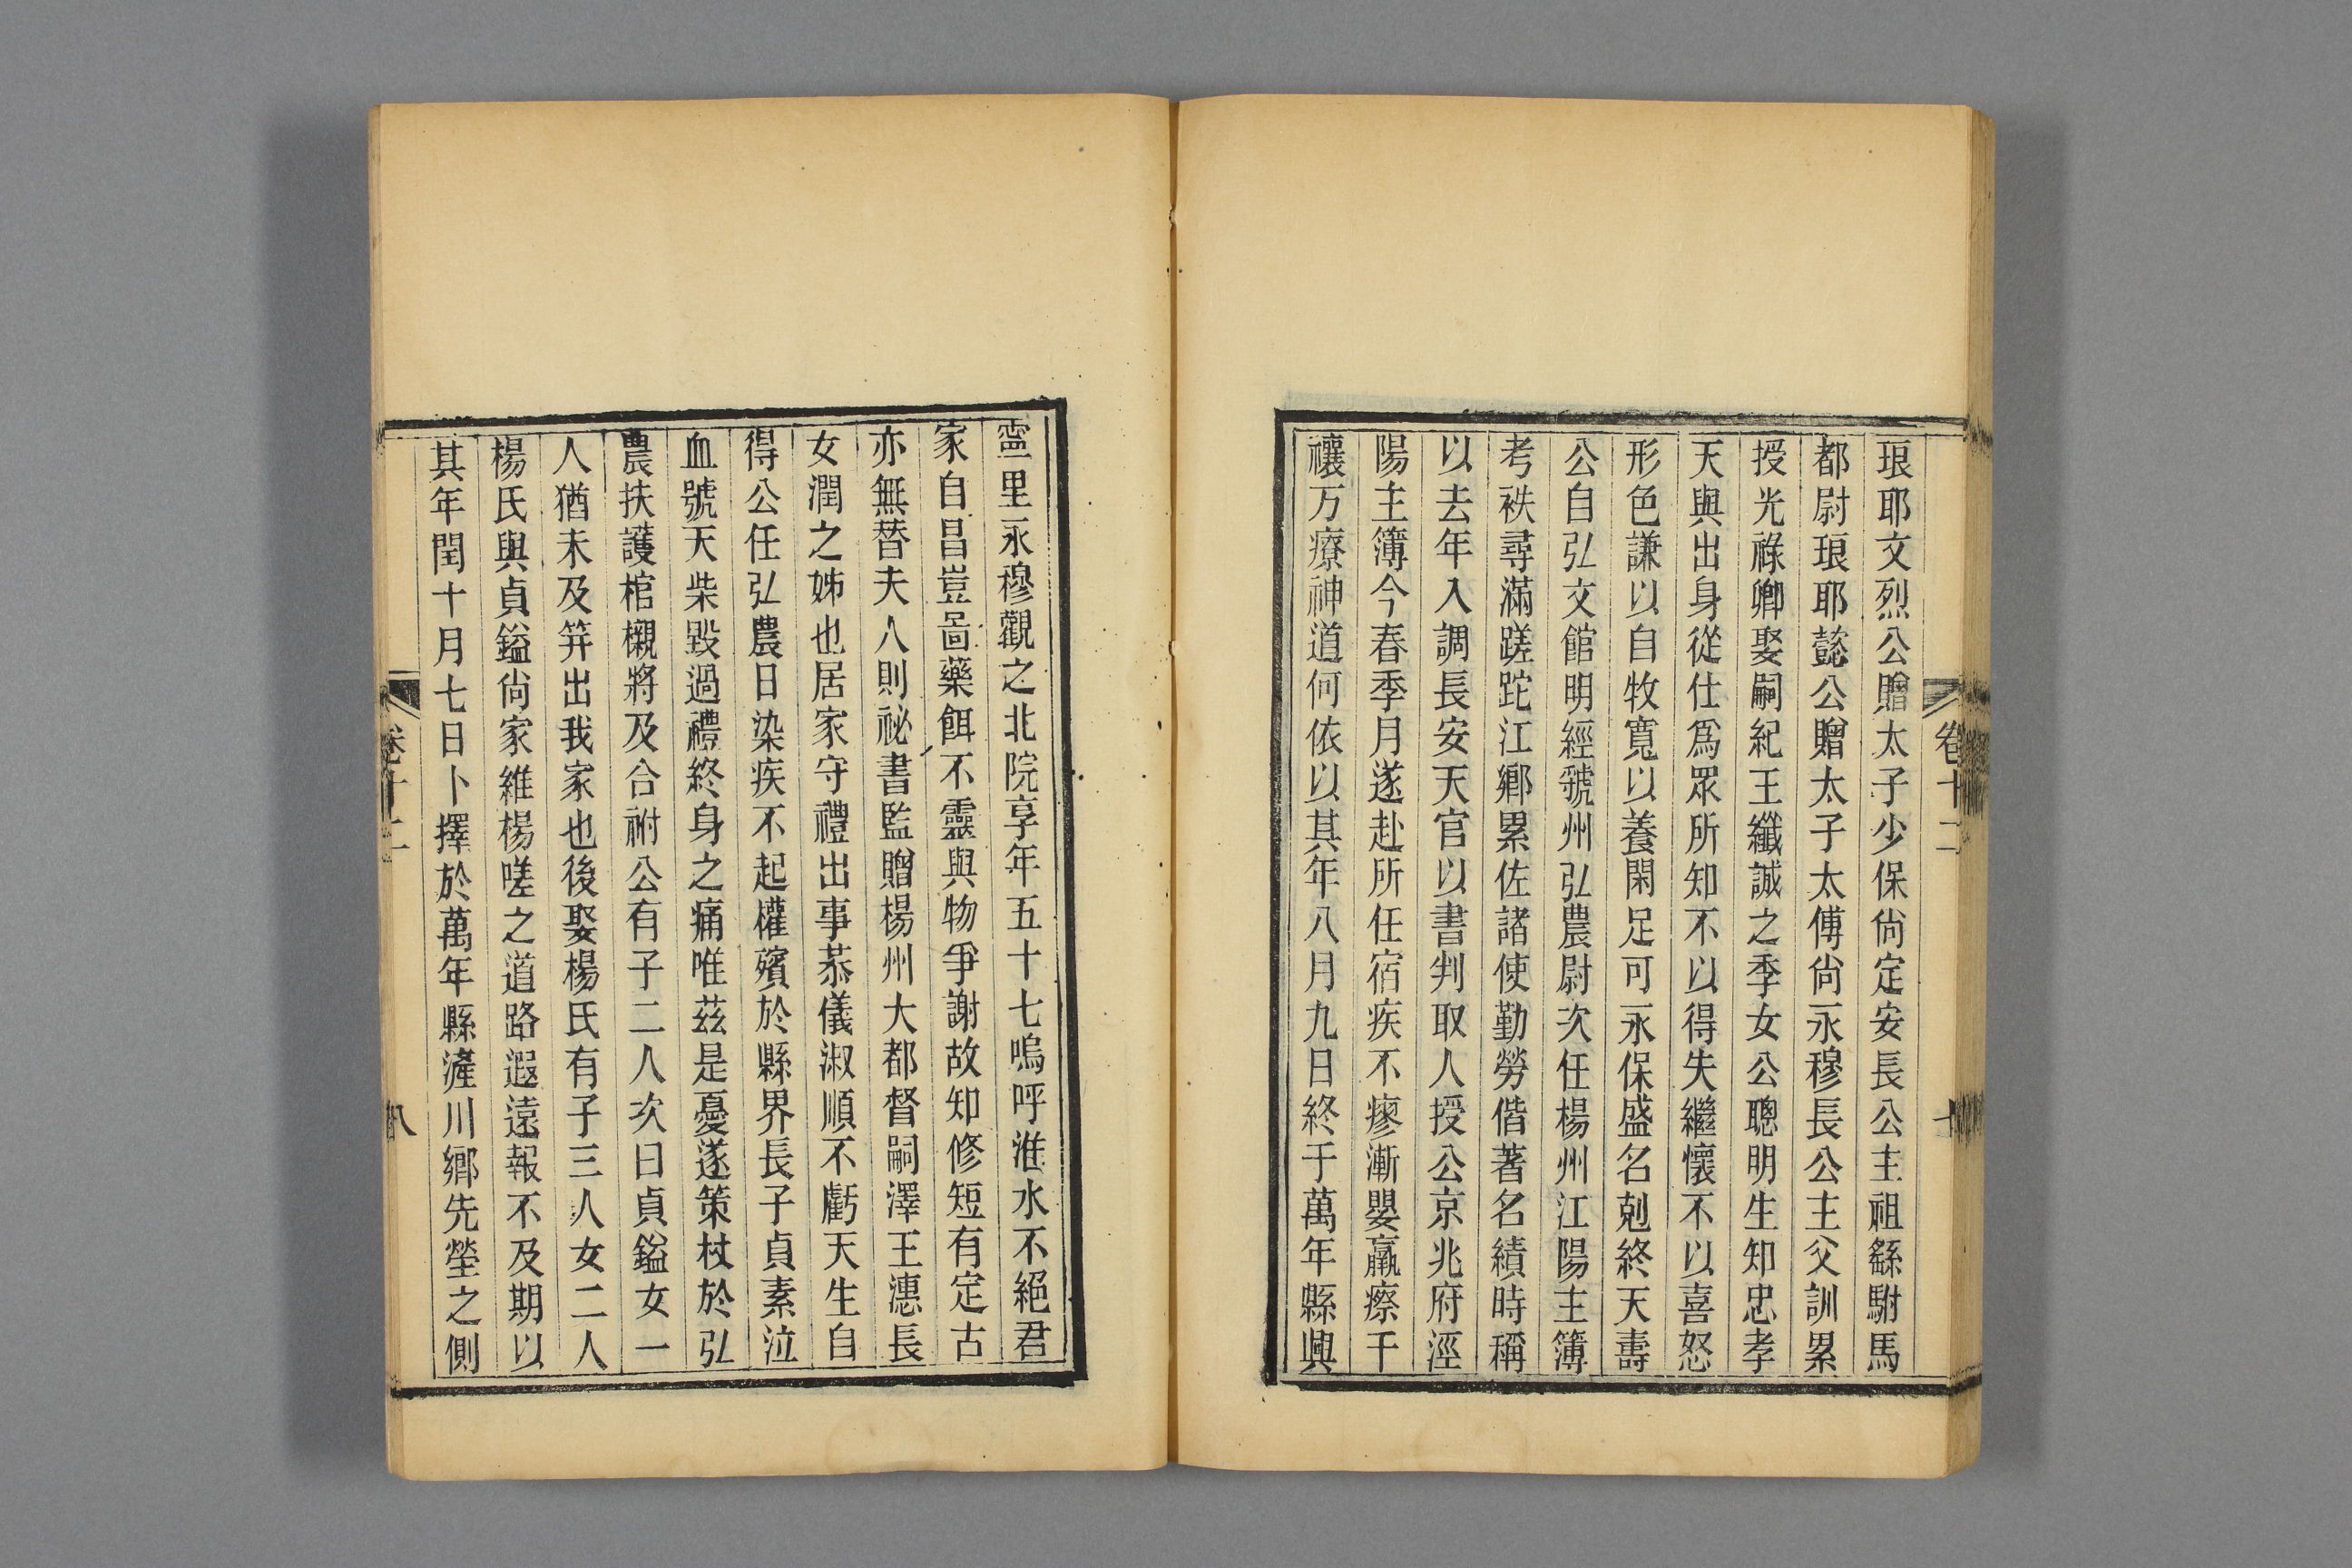 琅耶文烈公贈太子少保尙定安長公主祖繇駙馬
都尉琅耶懿公贈太子太傅尙永穆長公主父訓累
授光祿卿娶嗣紀王纖誠之季女公聰明生知忠孝
天與出身從仕爲眾所知不以得失繼懷不以喜怒
形色謙以自牧寬以養閑足可永保盛名剋終天壽
公自弘文館明經虢州弘農尉次任楊州江陽主簿
考袟尋滿蹉跎江鄉累佐諸使勤勞偕著名績時稱
以去年入調長安天官以書判取人授公京兆府涇
陽主簿今春季月遂赴所任宿疾不瘳漸嬰羸瘵千
禳万療神道何依以其年八月九日終于萬年縣興
卷十二
寧里永穆觀之北院享年五十七嗚呼淮水不絕君
家自昌豈啚藥餌不靈與物爭謝故知修短有定古
亦無替夫人則祕書監贈楊州大都督嗣澤王潓長
女潤之姊也居家守禮出事恭儀淑順不虧天生自
得公任弘農日染疾不起權殯於縣界長子貞素泣
血號天柴毀過禮終身之痛唯茲是憂遂策杖於弘
農扶護棺櫬將及合祔公有子二人次曰貞鎰女一
人猶未及笄出我家也後娶楊氏有子三人女二人
楊氏與貞鎰尙家維楊嗟之道路遐遠報不及期以
其年閏十月七日卜擇於萬年縣滻川鄉先塋之側
卷十二
八